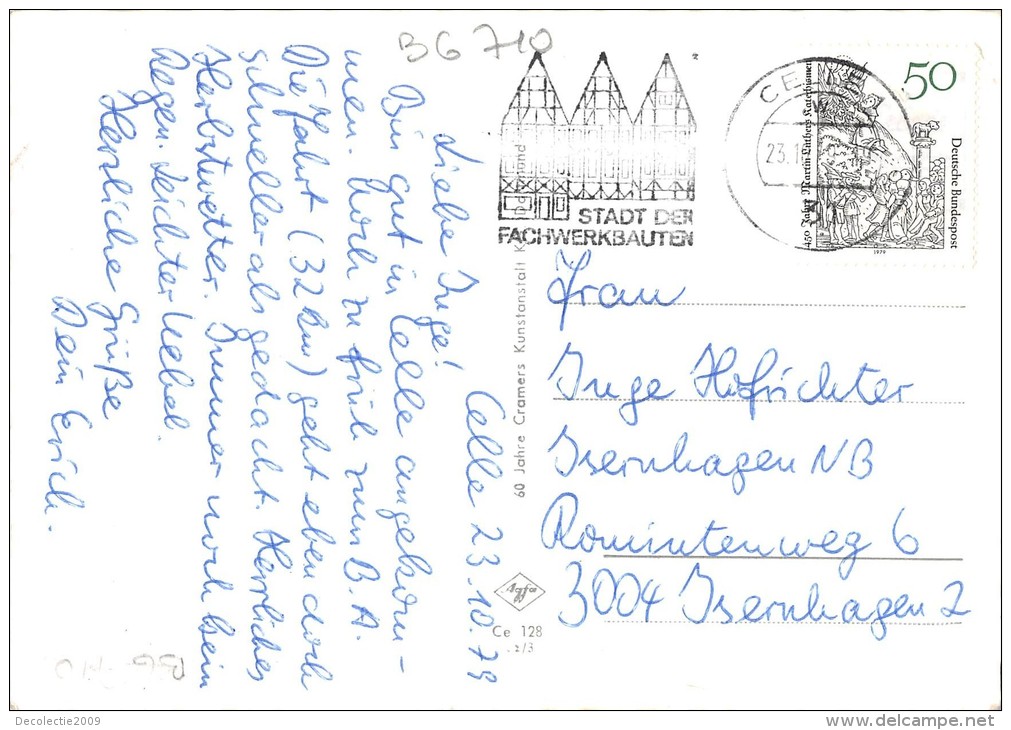 BG 710
Celle 23.10.79
Liebe Inge!
Bin gut in Celle angekom-
men. Noch zu früh zum B.A.
Die Fahrt (32 km) geht eben doch
schneller als gedacht. Herrliches
Herbstwetter. Immer noch kein
Regen. Leichter Nebel.
Herzliche Grüße
Dein Erich.
STADT DER
FACHWERKBAUTEN
CE
23.1
50
Deutsche Bundespost
450 Jahre Martin Luthers Katechismen
1979
60 Jahre Cramers Kunstanstalt K Dortmund
Agfa
Ce 128
2/3
Frau
Inge Hofrichter
Isernhagen NB
Romintenweg 6
3004 Isernhagen 2
BG 710
Decolectie2009
delcampe.net